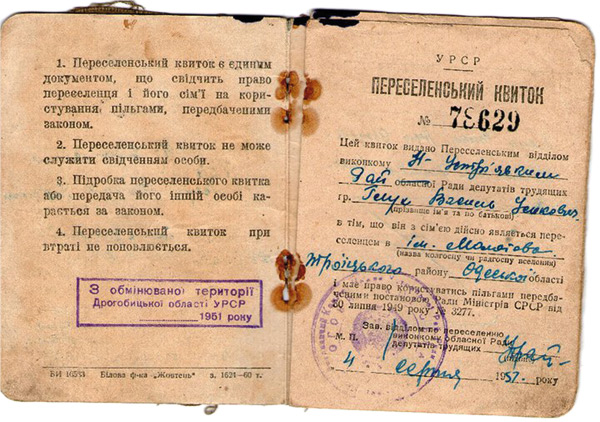 1. Переселенський квиток є єдиним
документом, що свідчить право
переселенця і його сім'ї на кори-
стування пільгами, передбаченими
законом.
2. Переселенський квиток не може
служити свідченням особи.
3. Підробка переселенського квитка
або передача його іншій особі ка-
рається за законом.
4. Переселенський квиток при
втраті не поповлюється.
З обмінюваної території
Дрогобицької області УРСР
1951 року
Білова ф-ка „Жовтень" з. 1624—60 т.
УРСР
ПЕРЕСЕЛЕНСЬКИЙ КВИТОК
№ 78629
Цей квиток видано Переселенським відділом
виконкому Н-Устр'яким
Рай обласної Ради депутатів трудящих
гр. Василь
(прізвище ім'я та по батькові)
в тім, що він з сім'єю дійсно являється пере-
селенцем в ім. Молотова
(назва колгоспу чи радгоспу вселення)
Троїцького району Одеської області
і має право користуватись пільгами передба-
ченими постановою Ради Міністрів СРСР від
30 липня 1949 року № 3277.
Зав. відділом по переселенню
виконкому обласної Ради
М. П. депутатів трудящих
4 серпня 1951 року